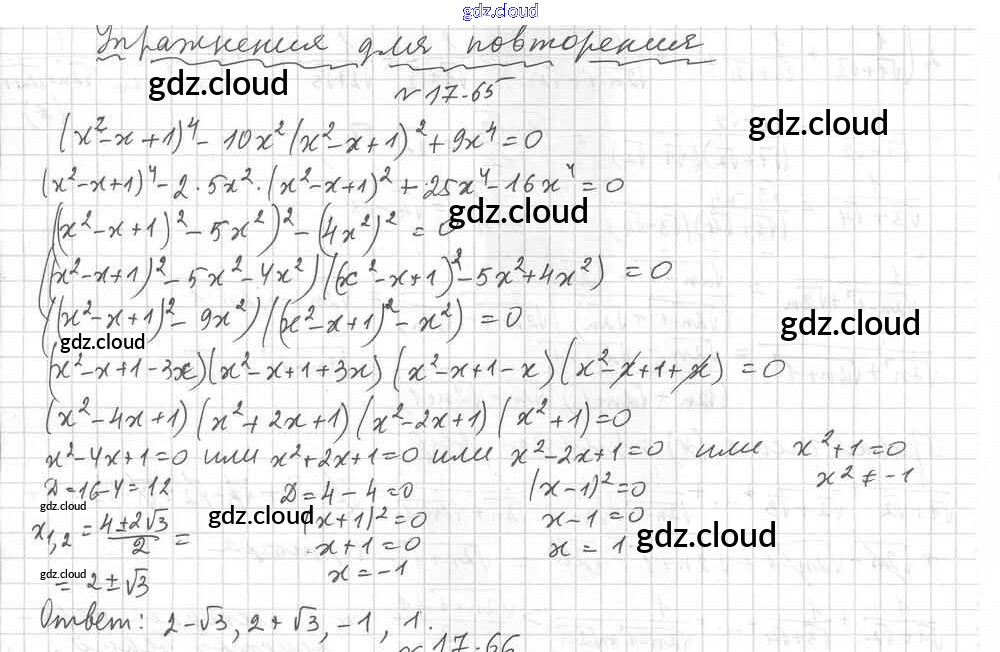 gdz.cloud
Упражнения для повторения
gdz.cloud
N 17-65
gdz.cloud
(x²-x+1)⁴ - 10x²(x²-x+1)² + 9x⁴ = 0
(x²-x+1)⁴ - 2·5x²·(x²-x+1)² + 25x⁴ - 16x⁴ = 0
((x²-x+1)² - 5x²)² - (4x²)² = 0
gdz.cloud
((x²-x+1)² - 5x² - 4x²)((x²-x+1)² - 5x² + 4x²) = 0
((x²-x+1)² - 9x²)((x²-x+1)² - x²) = 0
gdz.cloud
gdz.cloud
(x²-x+1-3x)(x²-x+1+3x)(x²-x+1-x)(x²-x+1+x) = 0
(x²-4x+1)(x²+2x+1)(x²-2x+1)(x²+1)=0
x²-4x+1=0 или x²+2x+1=0 или x²-2x+1=0 или x²+1=0
Д=16-4=12 Д=4-4=0 (x-1)²=0 x²≠-1
gdz.cloud gdz.cloud
x₁,₂ = (4±2√3)/2 = (x+1)²=0 x-1=0
gdz.cloud
x+1=0 x=1
gdz.cloud
= 2±√3 x=-1
Ответ: 2-√3, 2+√3, -1, 1.
N 17-66